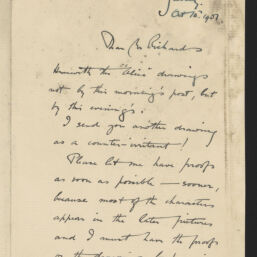 Oct 16. 1901.
Dear Mr Richards
Herewith the "Alice" drawings
not by this morning's post, but
by this evening's.
I send you another drawing
as a counter-irritant!
Please let me have proofs
as soon as possible — sooner,
because most of the characters
appear in the later pictures
and I must have the proofs